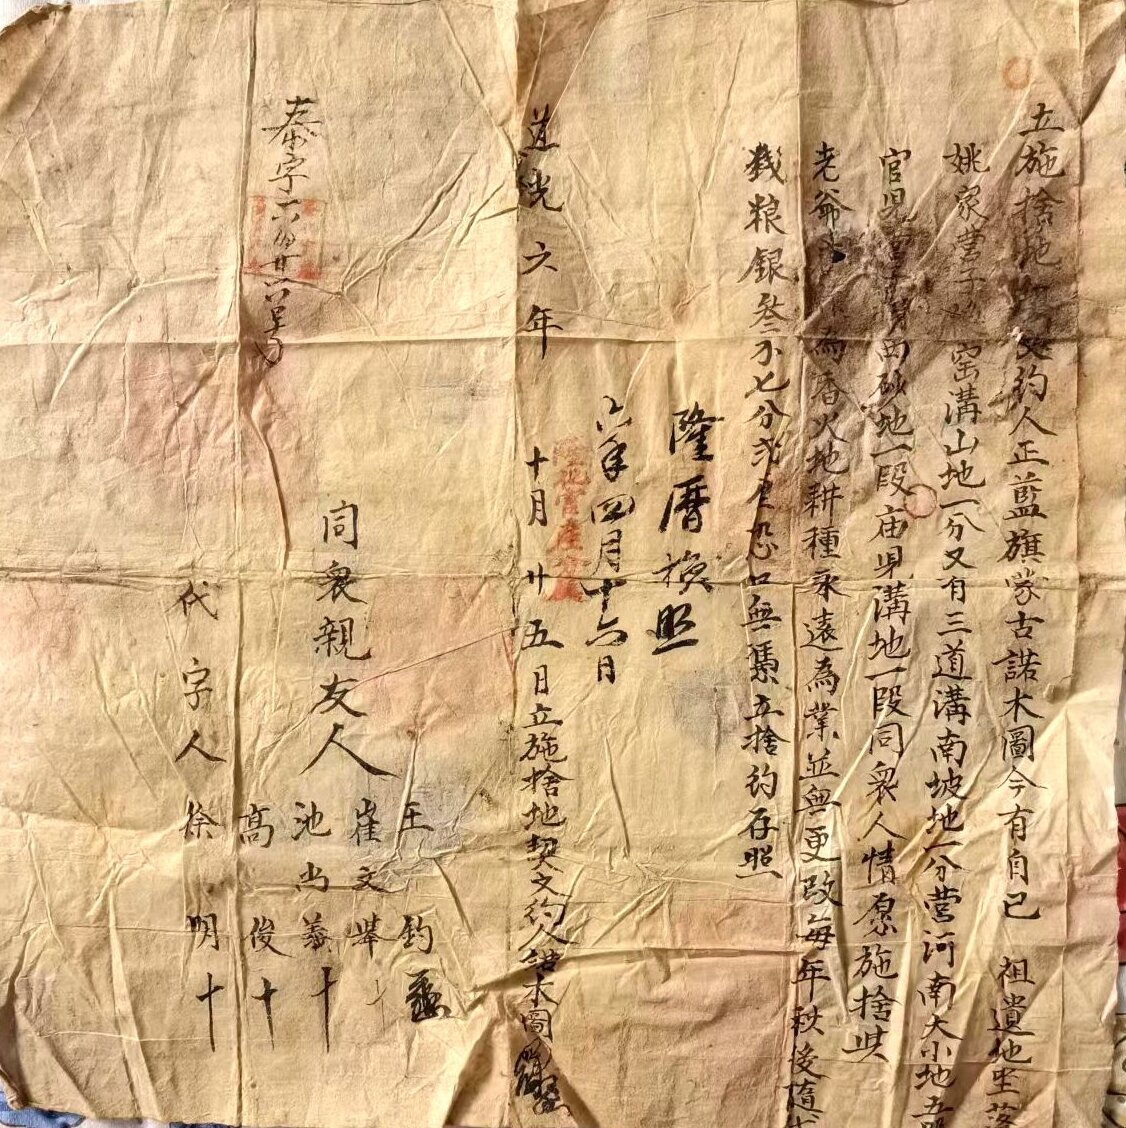 立施捨地契文約人正藍旗蒙古諾木圖今有自己祖遺地坐落
姚家營子 窑溝山地一分又有三道溝南坡地一分營河南大小地五
官 西砂地一段庙兒溝地一段同衆人情愿施捨
老爺 為香火地耕種永遠為業並無更改每年秋後隨
粮銀叁 七分 恐口無憑立捨約存照
隆曆換照
六年四月十六日
隆化官産
道光六年十月廿五日立施捨地契文約人諾木圖
同衆親友人
王鈞
崔文舉
池尚義十
高俊十
代字人徐明十
泰字六 廿六号